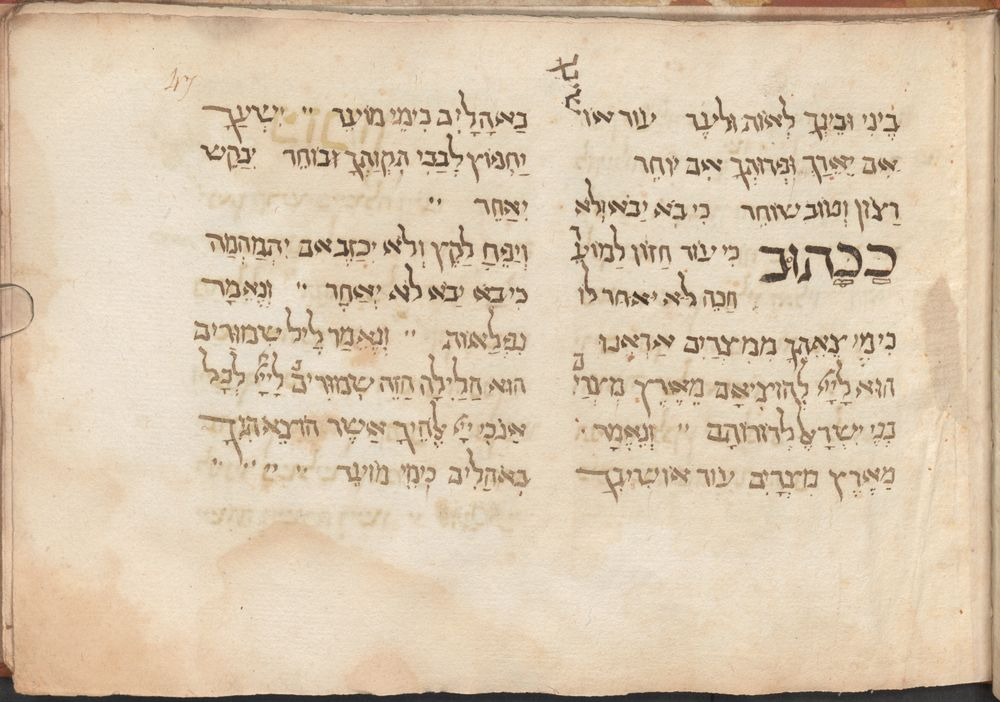 47
ביני ובינך לאות וליעד עוד או' באהלים כימי מועד ״ ישעך
אם יארך ופדותך אם יוחר יחפוץ לבבי תקותך ובוחר יבקש
רצון וטוב שוחר כי בא יבא ולא יאחר ״
ככתוב כי עוד חזון למועד ויפח לקץ ולא יכזב אם יתמהמה
חכה לא יאחר לו כי בא יבא לא יאחר ״ ונאמר
כימי צאתך ממצרים אראנו נפלאות ״ ונאמר ליל שמורים
הוא ליי להוציאם מארץ מצרים הוא הלילה הזה שמורים ליי לכל
בני ישראל לדורותם ״ ונאמר אנכי יי אלהיך אשר הוצאתיך
מארץ מצרים עוד אושיבך באהלים כימי מועד ״ ״ ״ ״